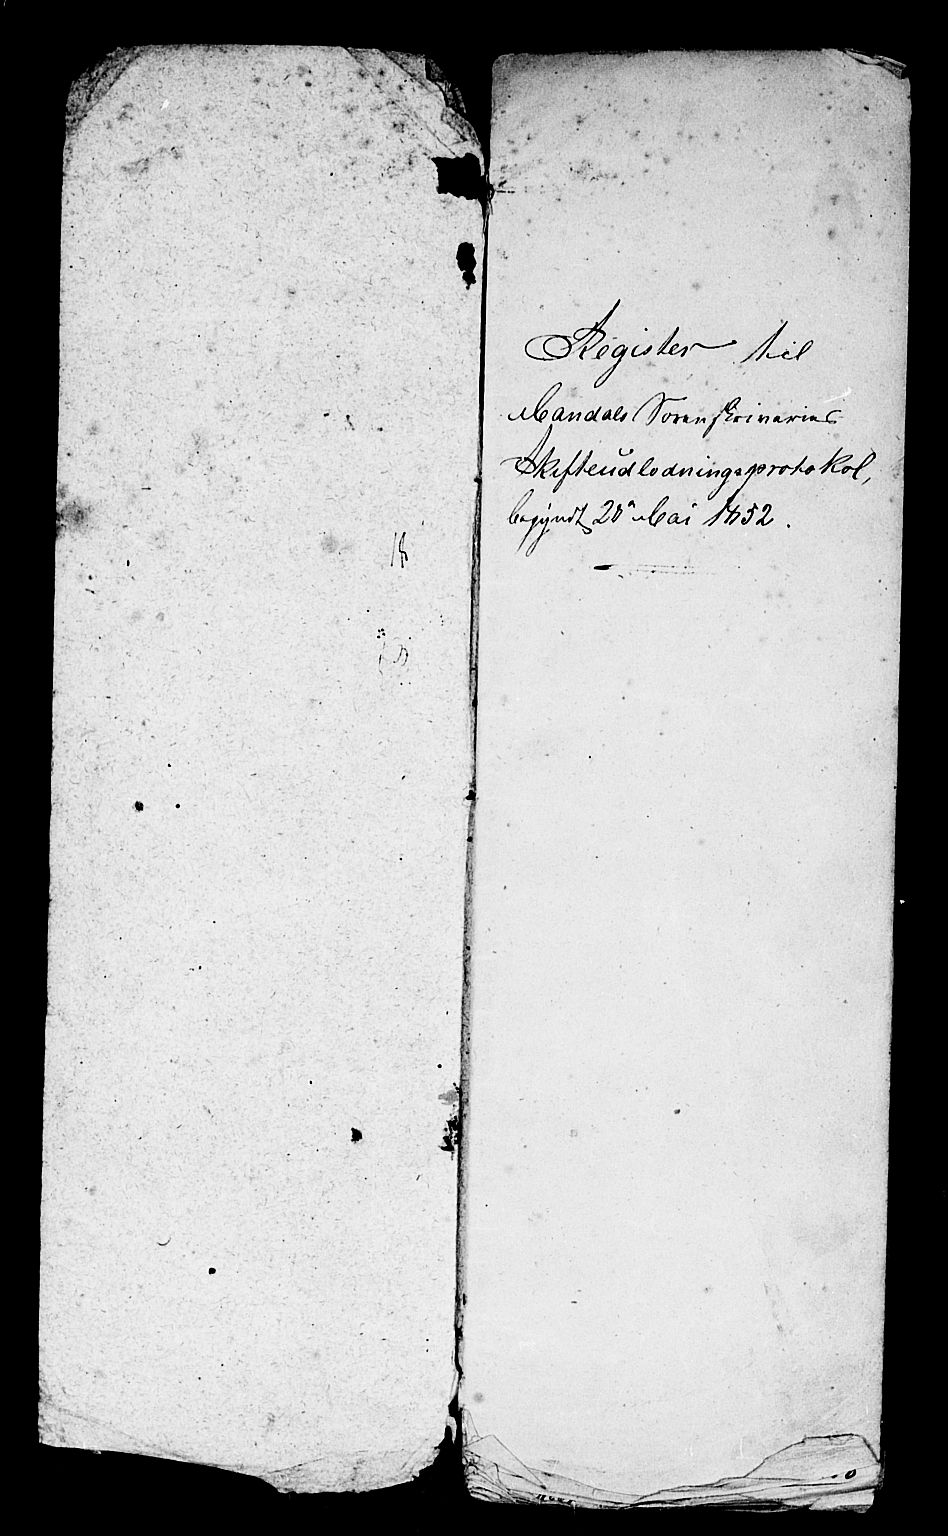 Register til
Mandals Sorenskriveries
Skifteudlodningsprotokol,
begyndt 28n Mai 1852.